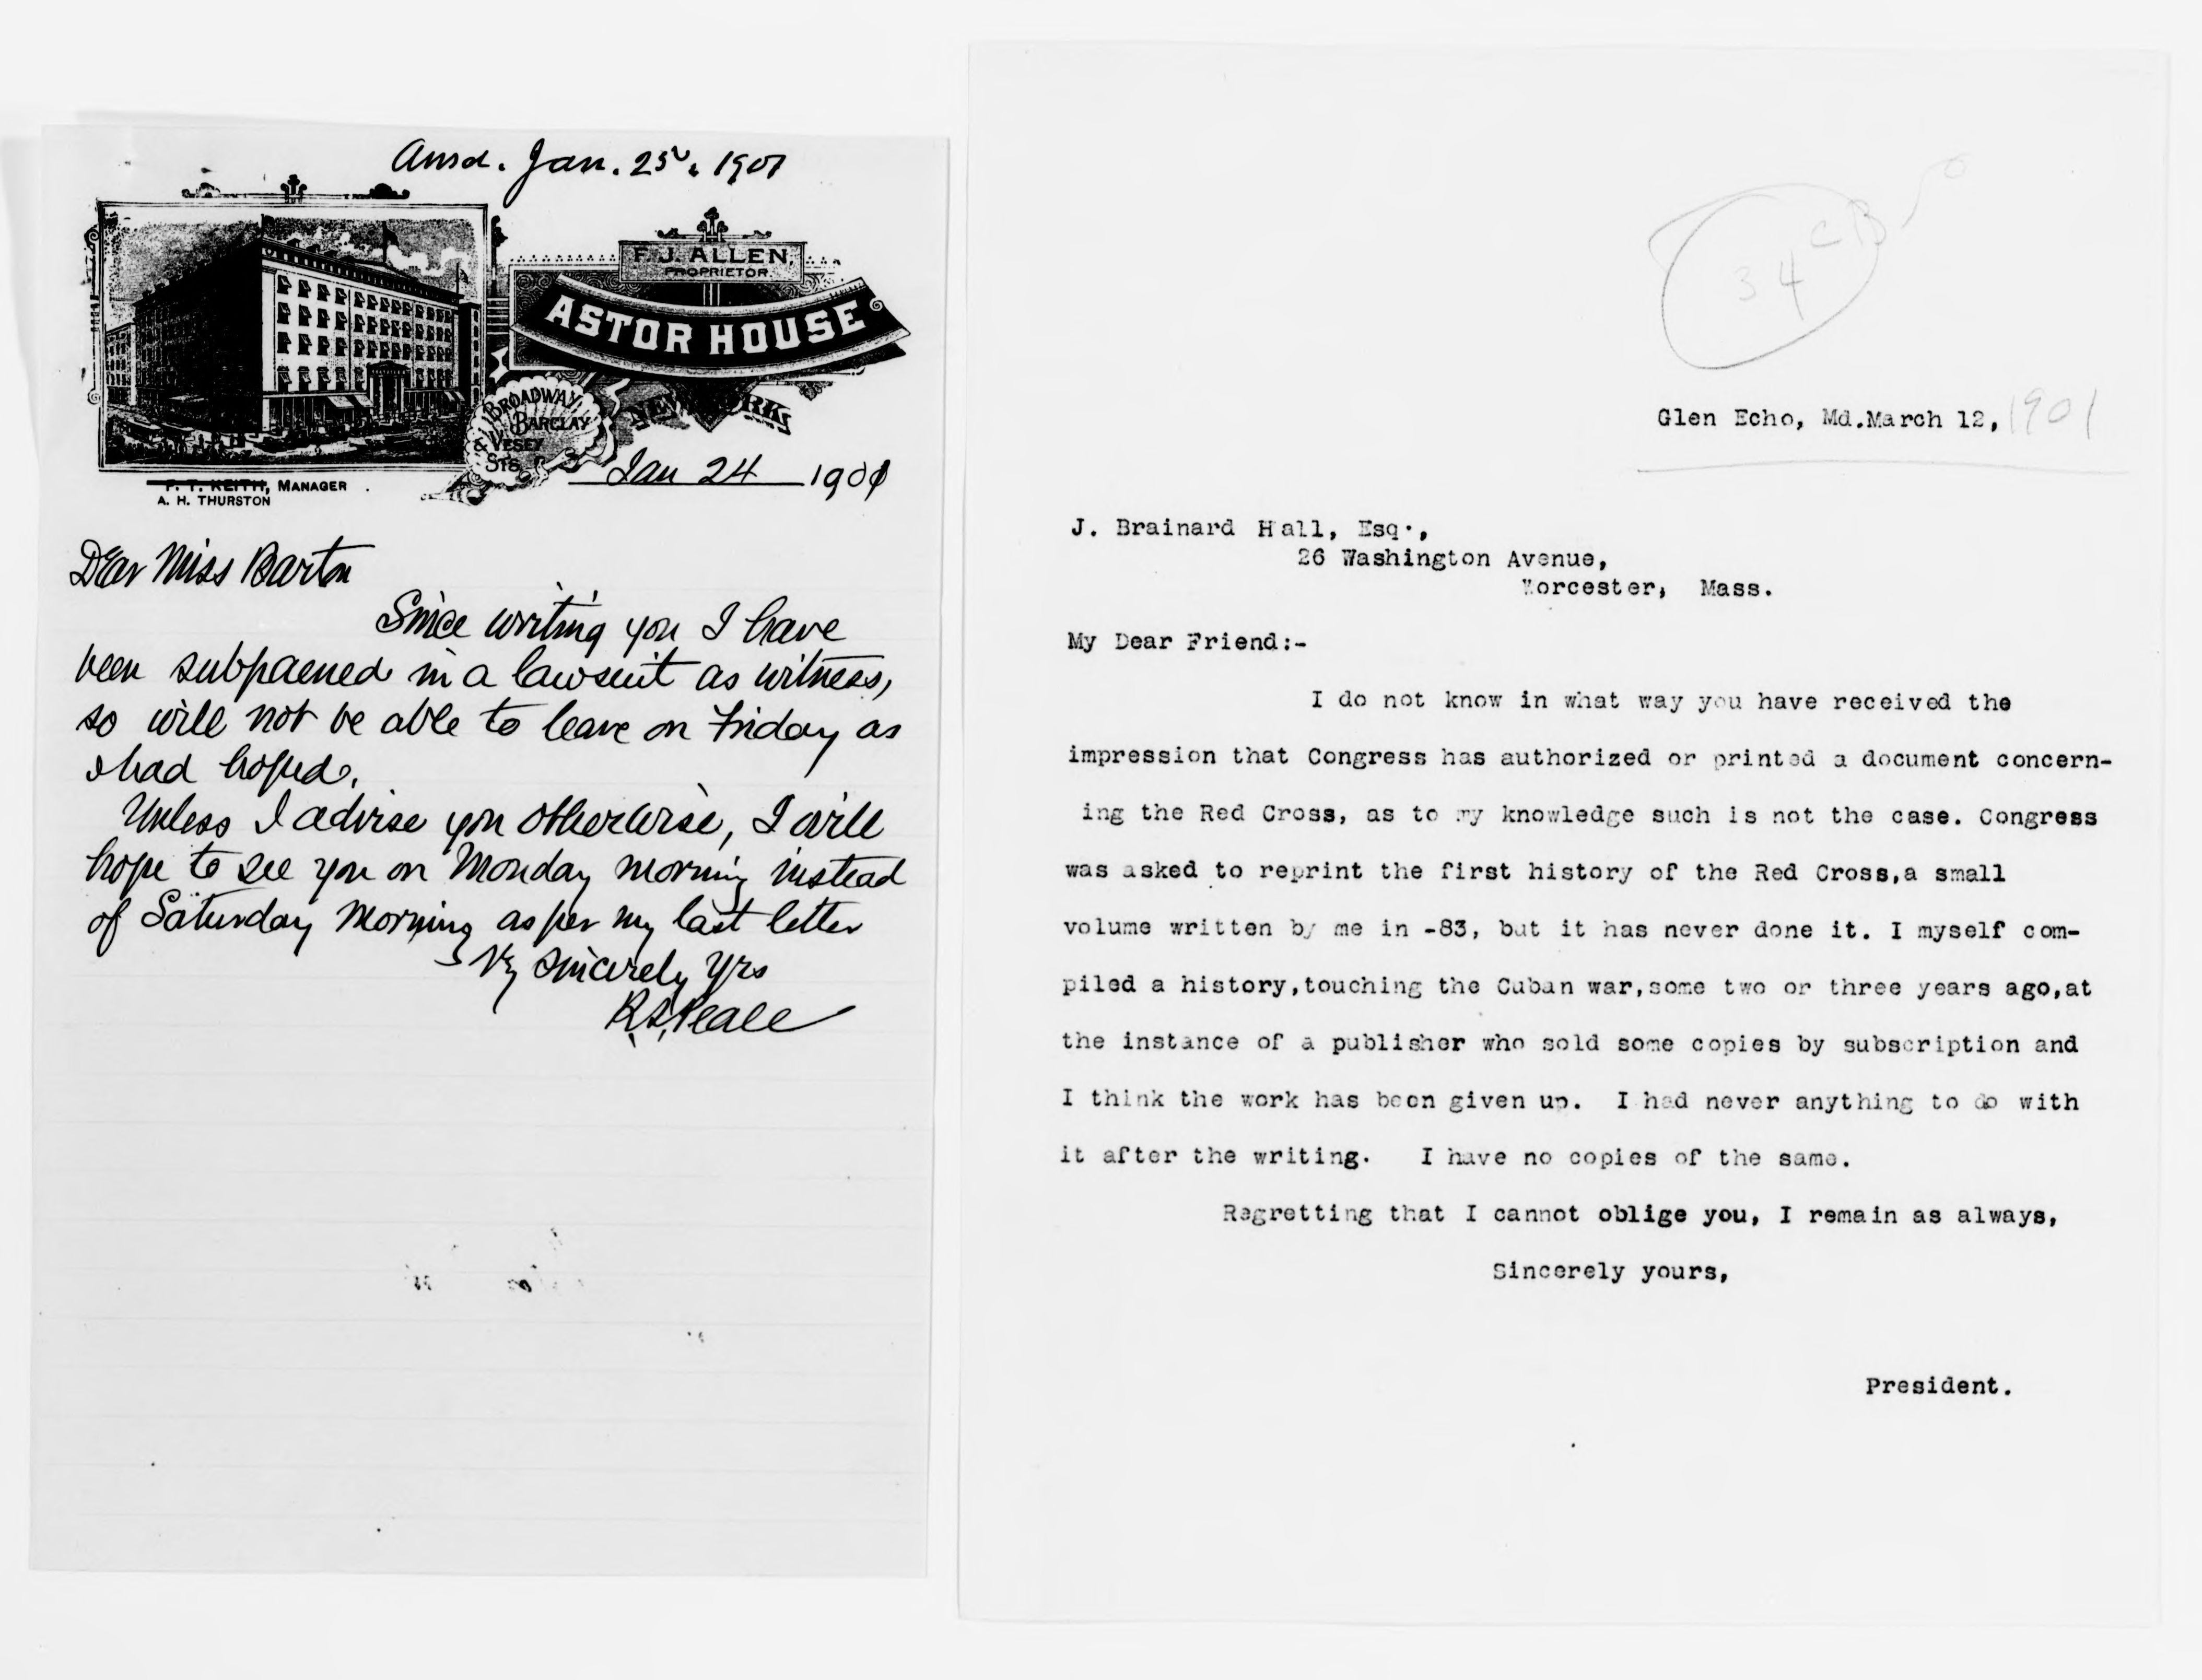 Ansd. Jan. 25, 1901
F. J. ALLEN,
PROPRIETOR
ASTOR HOUSE
BROADWAY,
BARCLAY
& VESEY
STS.
NEW YORK
Jan 24 1901
F. T. KEITH, MANAGER
A. H. THURSTON
Dear Miss Barton
Since writing you I have
been subpaened in a lawsuit as witness,
so will not be able to leave on Friday as
I had hoped.
Unless I advise you otherwise, I will
hope to see you on Monday morning instead
of Saturday morning as per my last letter
Vy sincerely yrs
R.S. Peale
34 CB
Glen Echo, Md.March 12, 1901
J. Brainard Hall, Esq.,
26 Washington Avenue,
Worcester, Mass.
My Dear Friend:-
I do not know in what way you have received the
impression that Congress has authorized or printed a document concern-
ing the Red Cross, as to my knowledge such is not the case. Congress
was asked to reprint the first history of the Red Cross,a small
volume written by me in -83, but it has never done it. I myself com-
piled a history,touching the Cuban war,some two or three years ago,at
the instance of a publisher who sold some copies by subscription and
I think the work has been given up. I had never anything to do with
it after the writing. I have no copies of the same.
Regretting that I cannot oblige you, I remain as always,
Sincerely yours,
President.